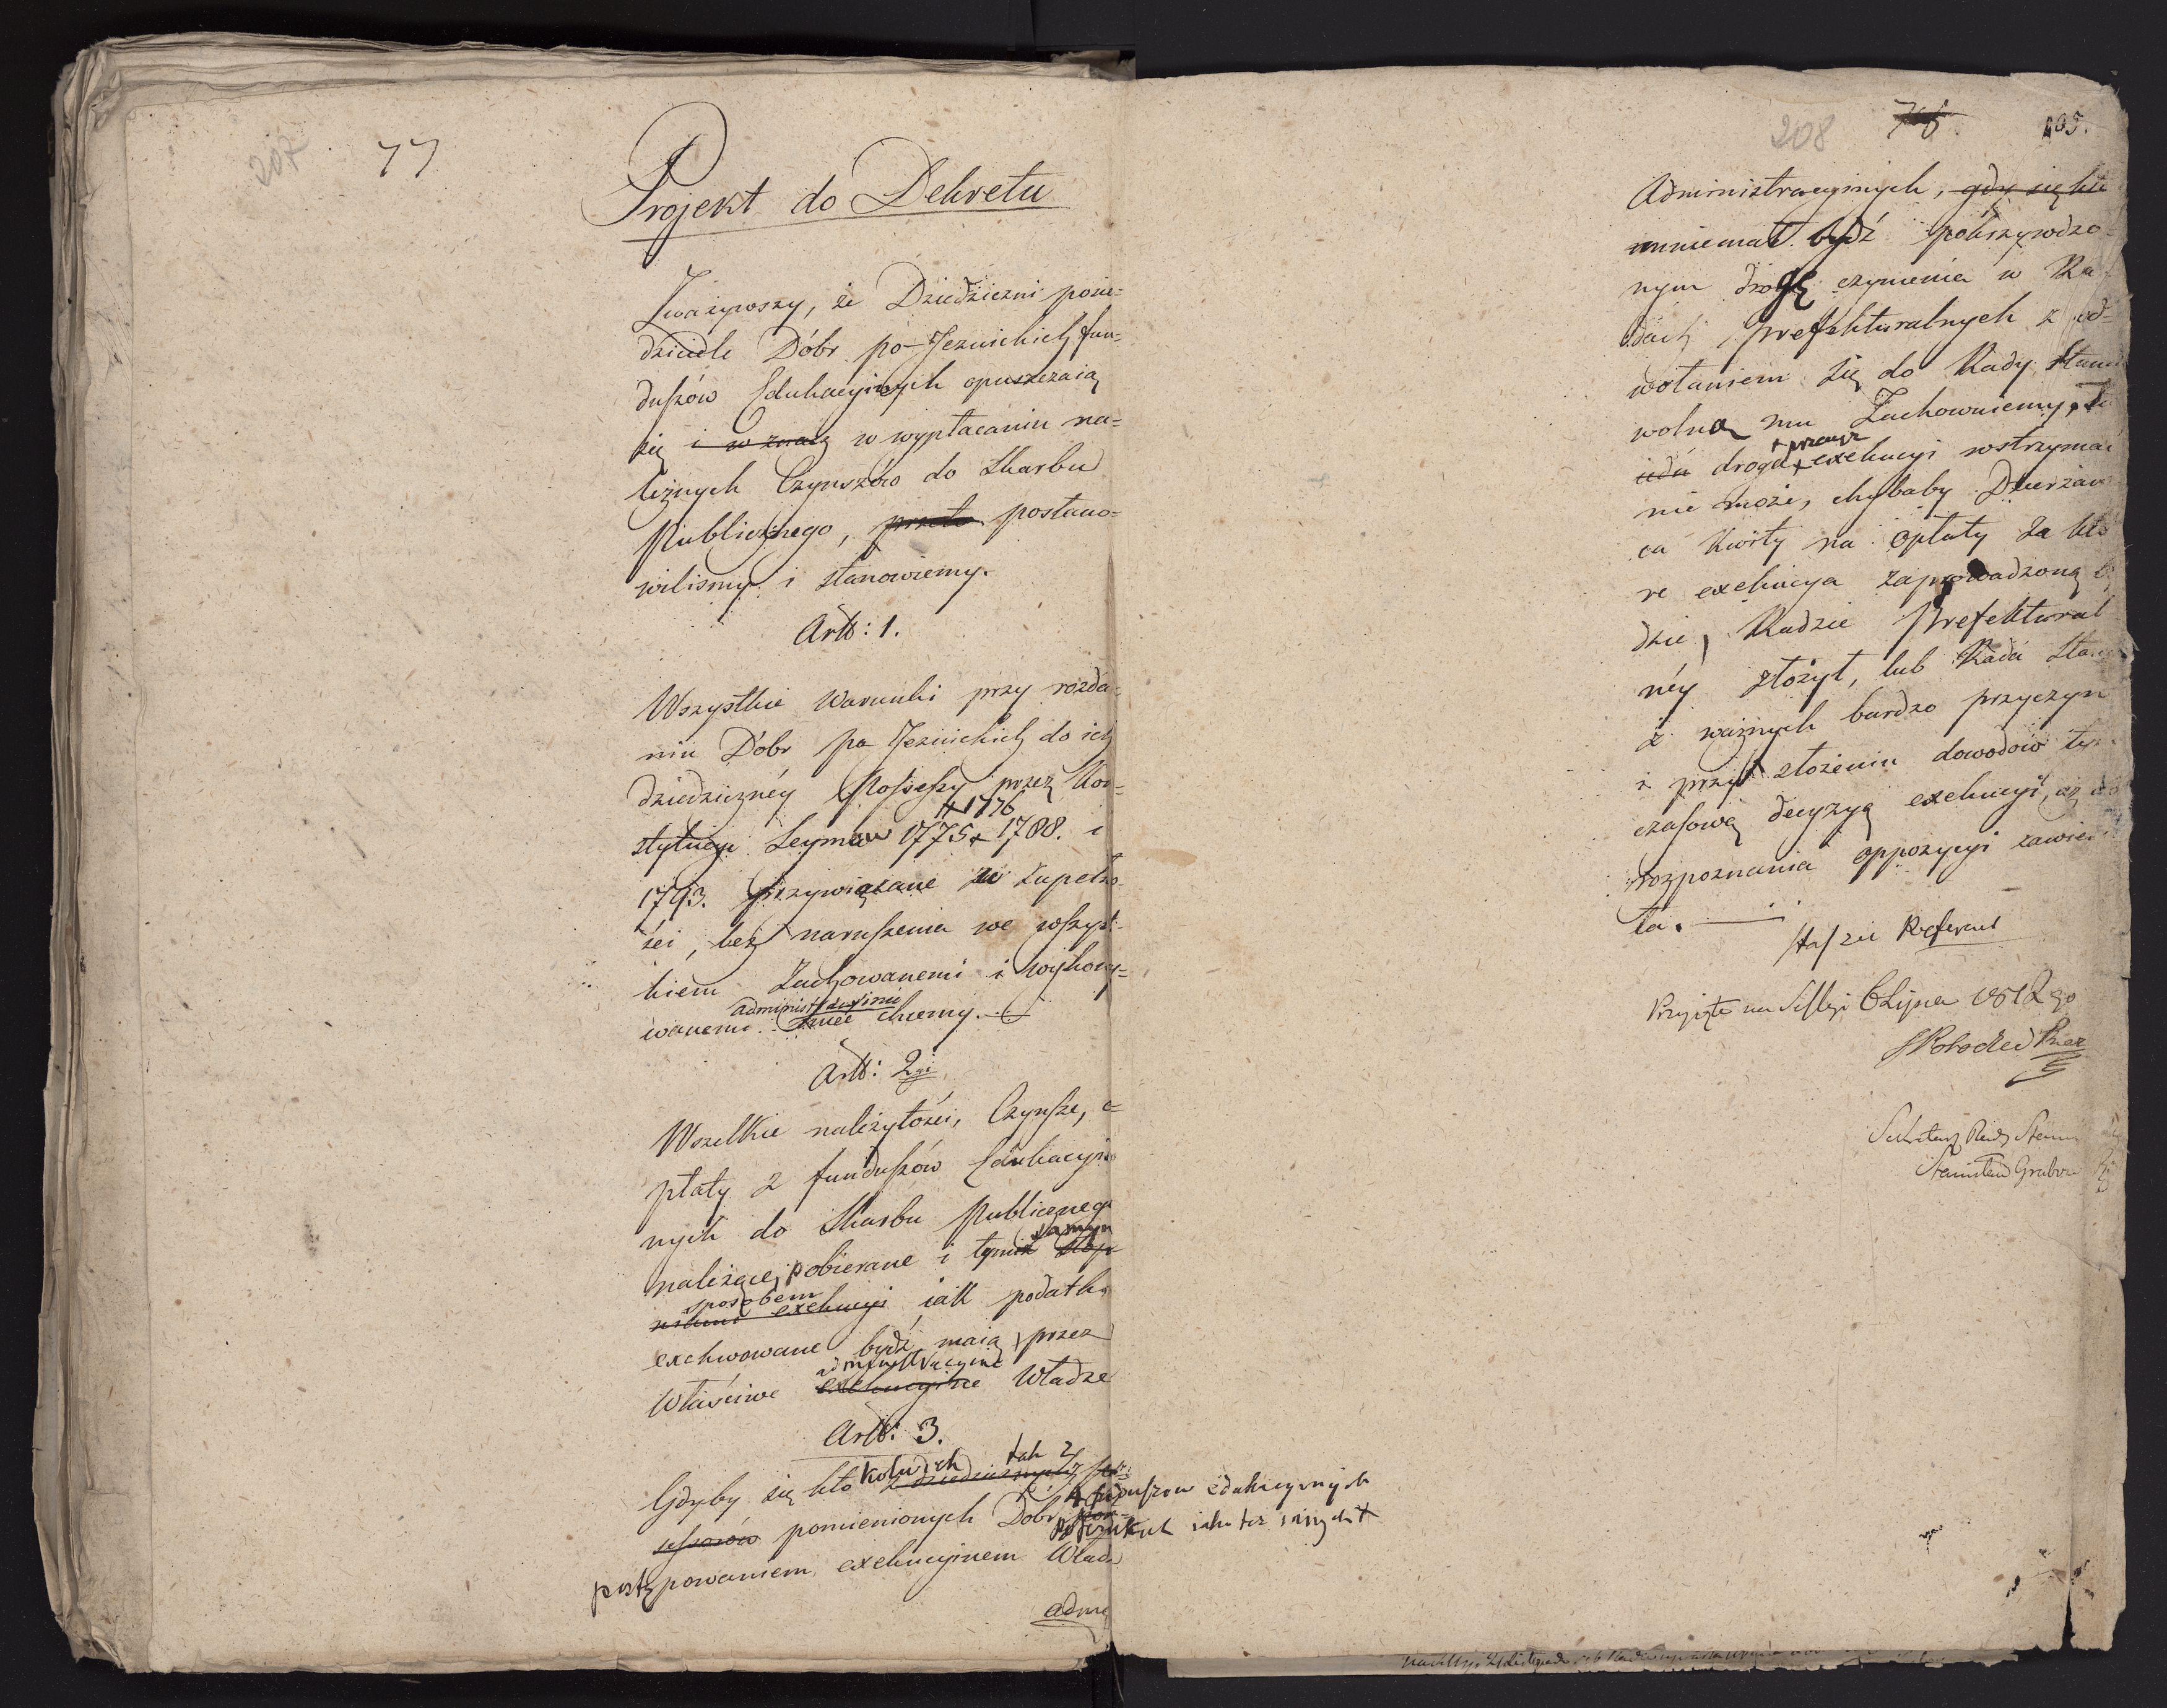 207
77
Projekt do Dekretu
Zważywszy, że Dziedziczni posie=
dziciele Dóbr po-Jezuickich fun=
duszów Edukacyinych opuszczaią
się i w wypłacaniu na=
leżnych Czynszów do Skarbu
Publicznego, przeto postano=
wilismy i stanowiemy.
Artt: 1.
Wszystkie Warunki przy rozda=
niu Dóbr po Jezuickich do ich
dziedziczney Possessyi przez Kon=
stytucye Seymów 1775 + 1788. i
+ 1776
1793. przywiązane w zupełno=
ści, bez naruszenia we wszyst=
kiem Zachowanemi i wykony=
administracyinie
wanemi mieć chcemy.
Artt: 2gi
Wszelkie należytości, Czynsze, o=
płaty z funduszów Edukacyi
nych do Skarbu Publicznego
należące, pobierane i tymże
samym
sposobem
exekucyi iak podatki
exekwowane bydź maią, przez
administracyine
Właściwe exekucyine Władze
Artt: 3.
Gdyby się kto z dziedzicznych
tak z
sessorów pomienionych Dóbr
funduszow edukacynych
iako tez innych +
postępowaniem exekucyinem Władz
admi
208
76
105.
Administracyinych, gdy się kto
mniemał bydź pokrzywdzo=
nym drogę czynienia w Ra=
dach Prefekturalnych z od=
wołaniem się do Rady Stanu
wolną mu Zachowuiemy,
droga exekucyi wstrzymać
nie może, chybaby Dzierżaw
ca Kwity na opłaty za któ
re exekucya zaprowadzona
dzie, Radzie Prefektural
néy złożył, lub Rada Stanu
z ważnych bardzo przyczyn
i przy złożeniu dowodów tym
czasową decyzyą exekucyi, aż do
rozpoznania oppozycyi zawiesi
ła.
Staszic Referent
Przyięte na Sessyi 6 Lipca 1812 go
Sekretarz Rady Stanu
Stanisław Grabow